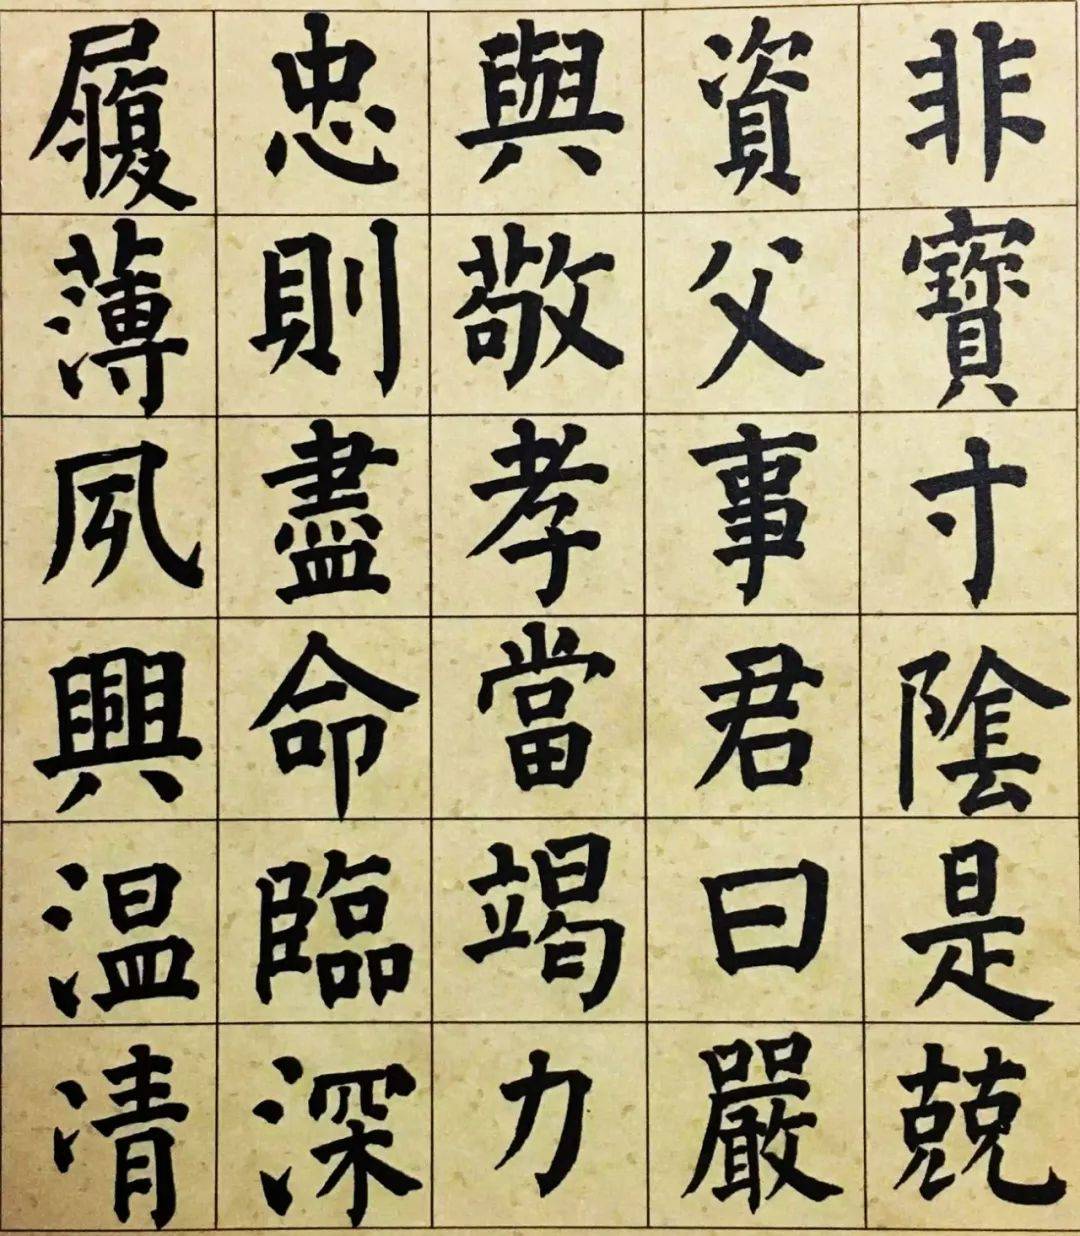 非寶寸隂是競
資父事君曰嚴
與敬孝當竭力
忠則盡命臨深
履薄夙興温清